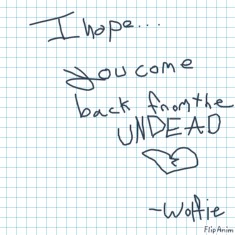 I hope...
You come
back from the
UNDEAD
-Wolfie
FlipAnim